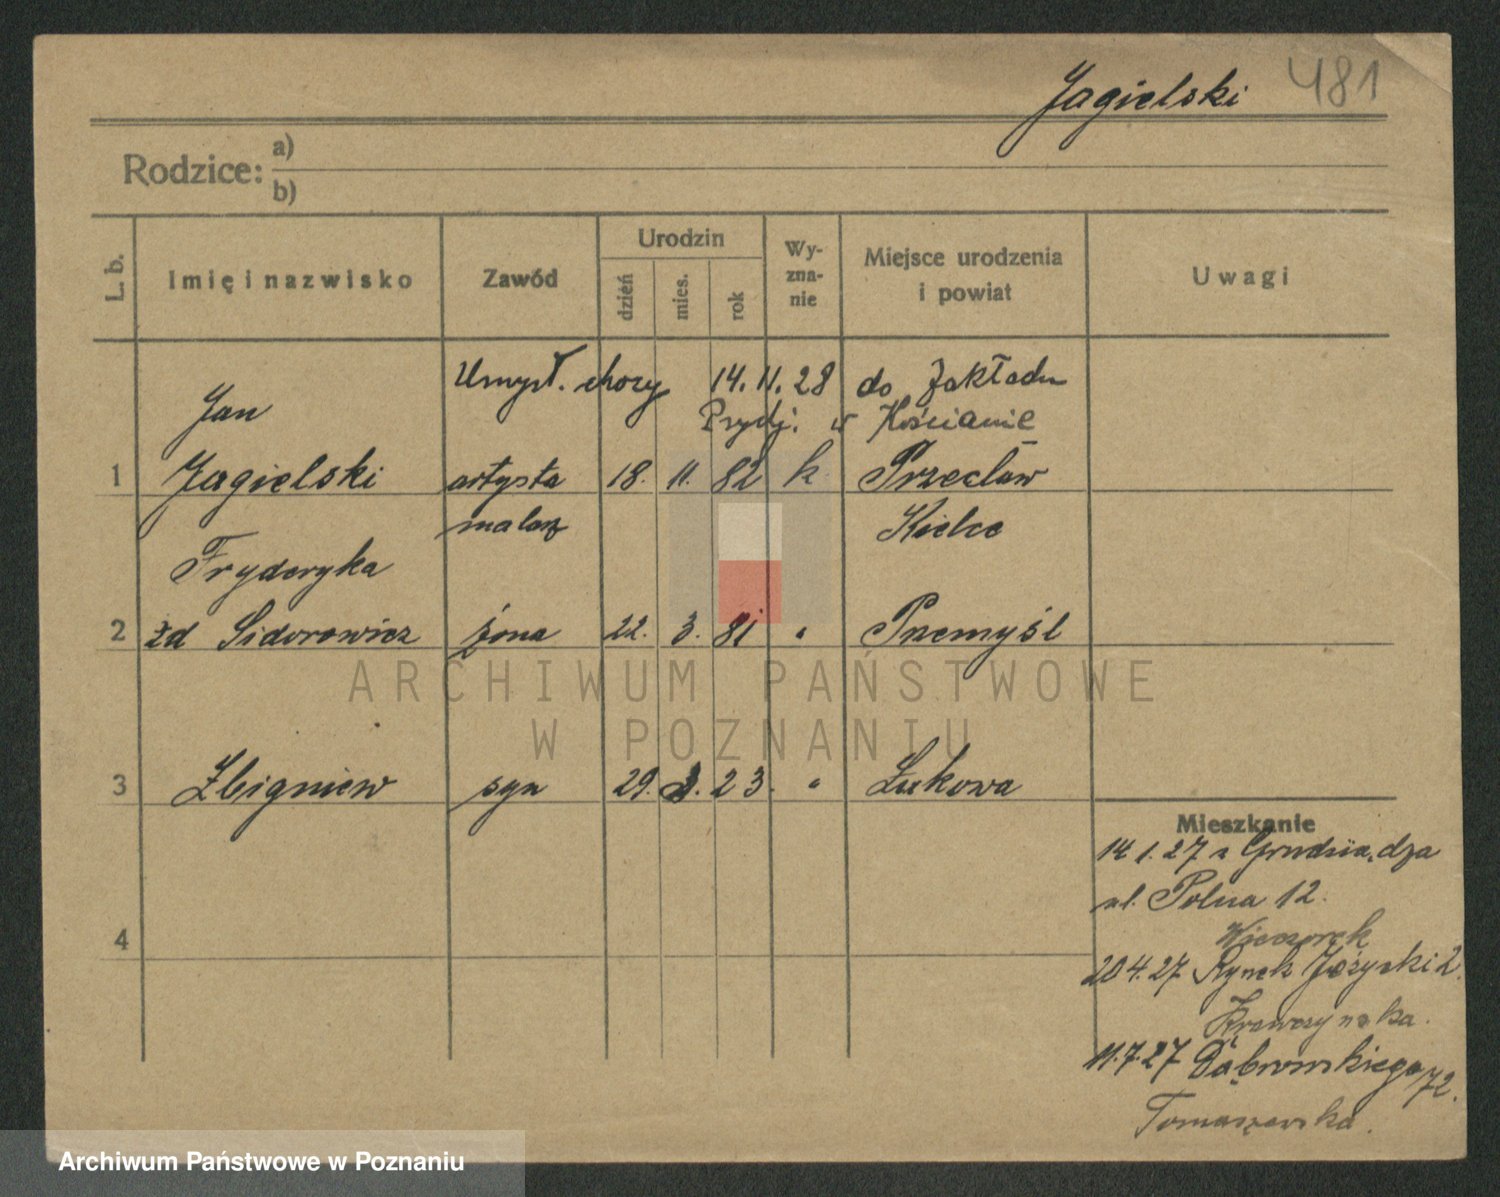 Jagielski 481
Rodzice: a)
b)
L. b.
Imię i nazwisko
Zawód
Urodzin
dzień
mies.
rok
Wy-
zna-
nie
Miejsce urodzenia
i powiat
Uwagi
Umysł. chory 14.11.28 do Zakładu
Psych. w Kościanie
Jan
1 Jagielski artysta 18. 11. 82 k Przecław
malarz Kielce
Fryderyka
2 żd Sidorowicz żona 22. 3. 81 " Przemyśl
3 Zbigniew syn 29. 3. 23. " Łukowa
4
Mieszkanie
14 1. 27 z Grudziądza
ul. Polna 12.
Wieczorek
20 4. 27 Rynek Jeżycki 2.
Krawczynska.
11.7.27 Dąbrowskiego 72.
Tomaszewska.
ARCHIWUM PAŃSTWOWE
W POZNANIU
Archiwum Państwowe w Poznaniu